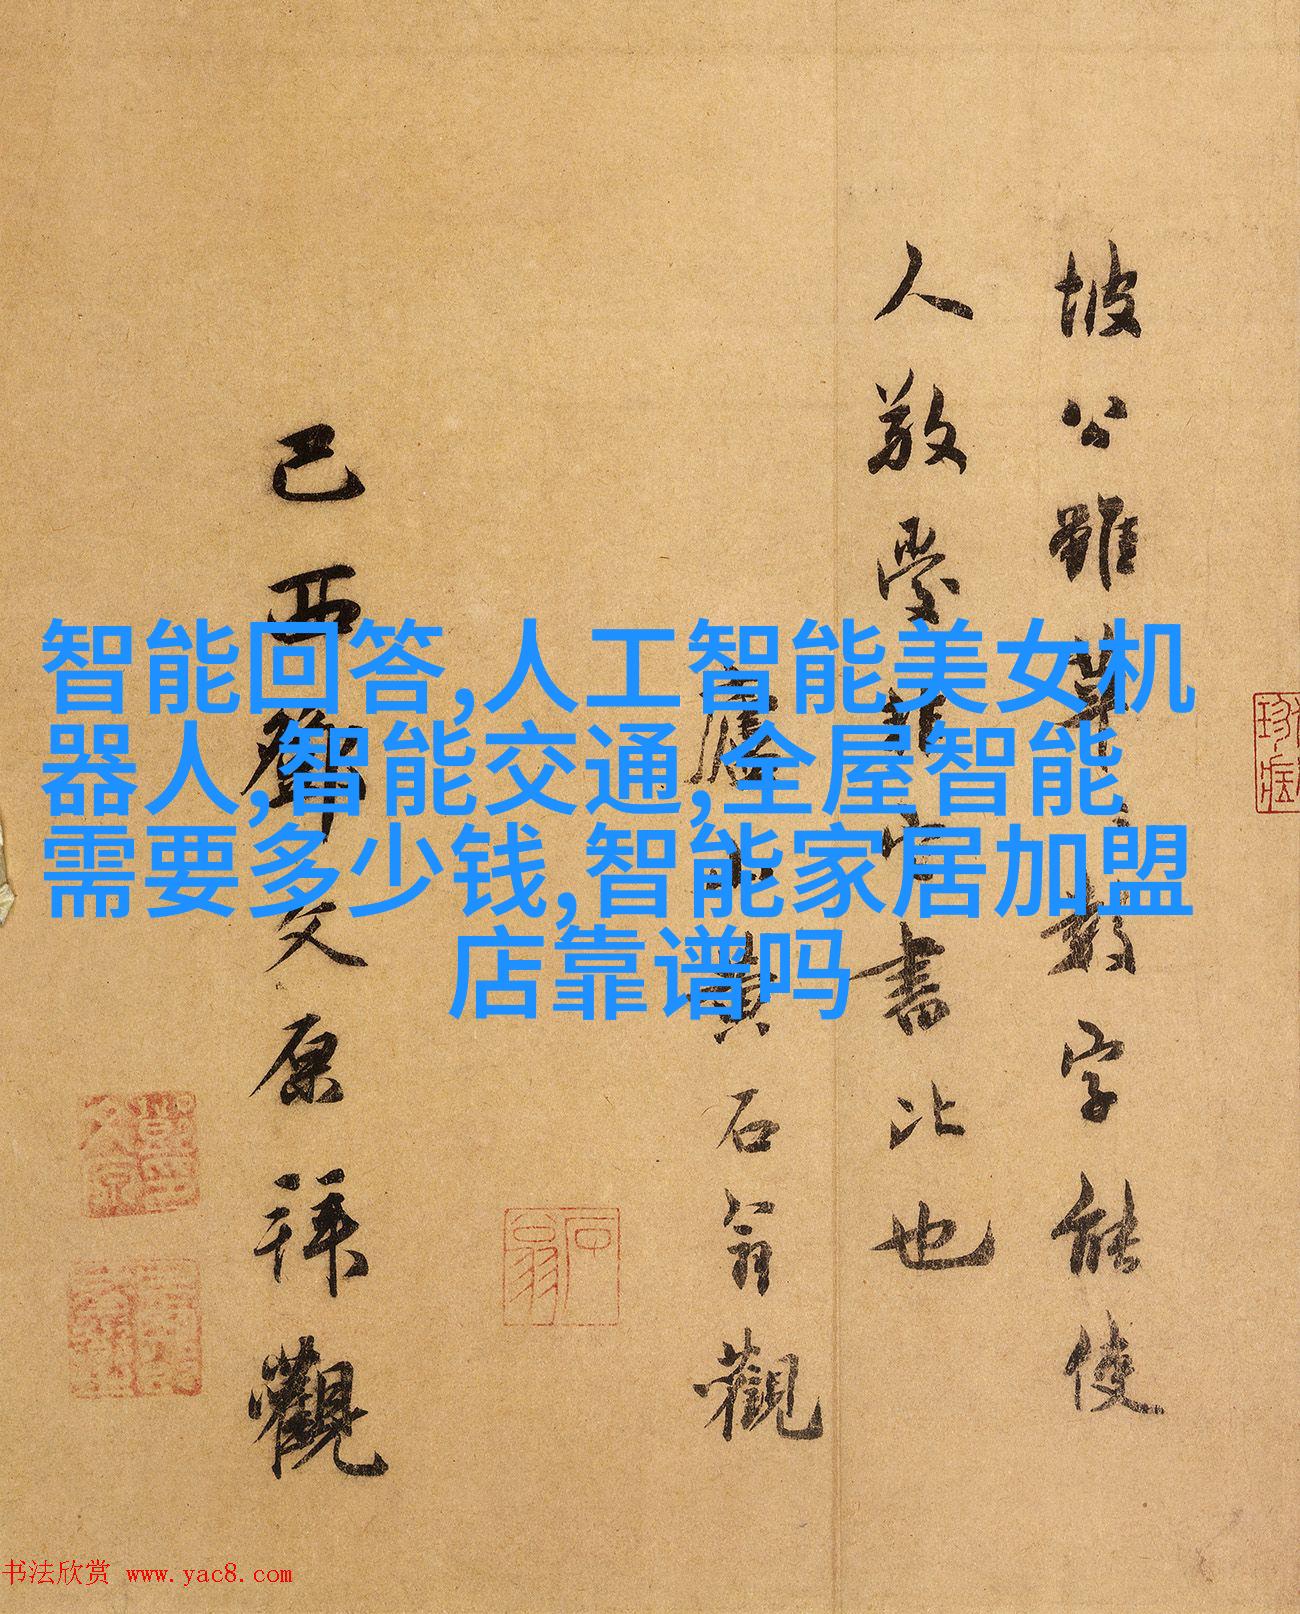 坡公雖草草數字能使
人敬愛
書比也
黃石翁觀
己酉鄧文原拜觀
石翁
智能回答,人工智能美女机
器人,智能交通,全屋智能
需要多少钱,智能家居加盟
店靠谱吗
书法欣赏 www.yac8.com